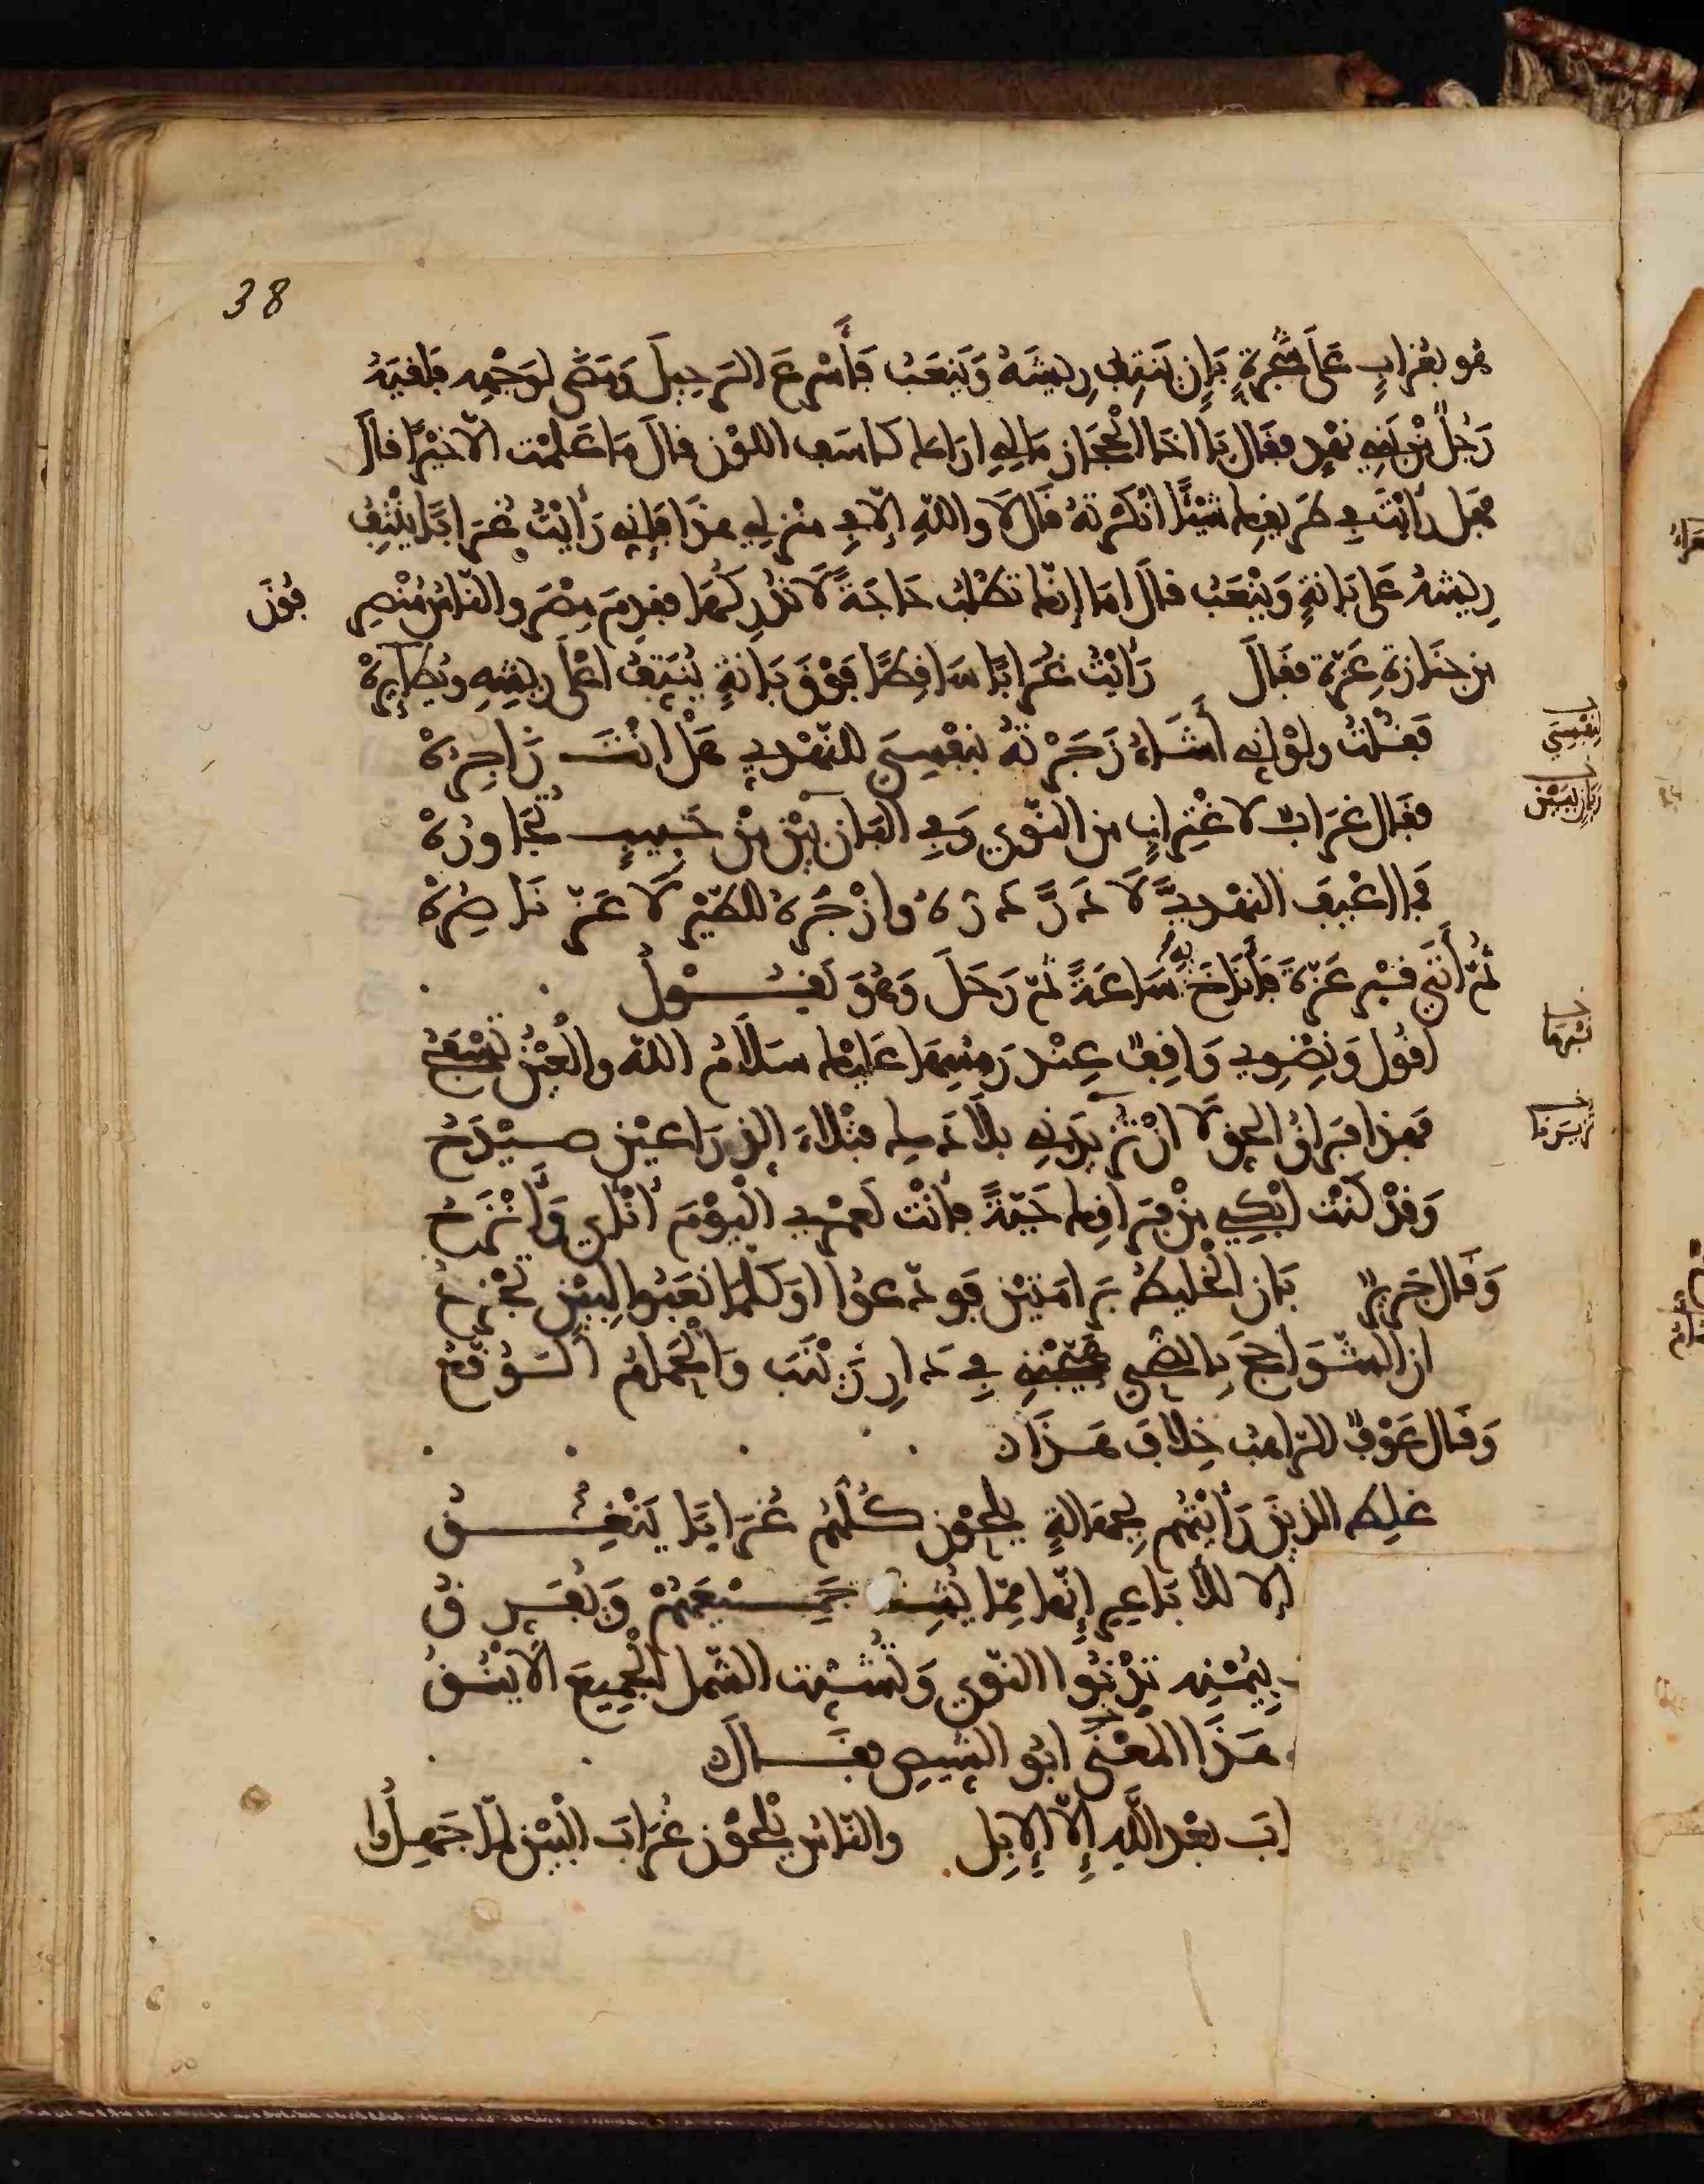 38
هو بغراب على شجرة بان ينتف ريشه وينعب فأسرع الرحيل ومضى لوجهه فلقيه
رجل من بني نهد فقال يا اخا الحجاز مالي اراك كاسف اللون قال ما علمت الا خيرا قال
فهل رأيت في طريقك شيئا انكرته قال لا والله إلا في منزلي هذا فإني رأيت غرابا ينتف
ريشه على بانة وينعب قال اما إنك تطلب حاجة لا تدركها فقدم مصر والناس منصر
فون
من جنازة عزة فقال رأيت غرابا ساقطا فوق بانة ينتف اعلى ريشه ويطايره
فقلت ولو اني أشاء زجرته بنفسي للنهدي هل انت زاجره
لنفسي
فقال غراب لاغتراب من النوى وفي البان بين من حبيب تجاوره
فما اعيف النهدي لا در دره وازجره للطير لا عز ناصره
ثم أتى قبر عزة فأناخ به ساعة ثم رحل وهو يقول
اقول ونضوي واقف عند رمسها عليك سلام الله والعين تسفح
فهذا فراق الحق لا ان تزيرني بلادك فتلاء الذراعين صيدح
وقد كنت ابكي من فراقك حية فأنت لعمري اليوم انأى وأنزح
وقال جرير بان الخليط برامتين فودعوا اوكلما نعبوا لبين تجزع
ان الشواحج بالضحى هيجنني في دار زينب والحمام الوقع
وقال عوف الراهب خلاف هذا
غلط الذين رأيتهم بجهالة يلحون كلهم غرابا ينعق
إلا للاباعر إنها مما يشت جميعهم ويفرق
بيمنه تدنوا النوى وتشتت الشمل الجميع الاينق
هذا المعنى ابو الشيص فقال
اب بعد الله إلا الإبل والناس يلحون غراب البين لما جهلوا